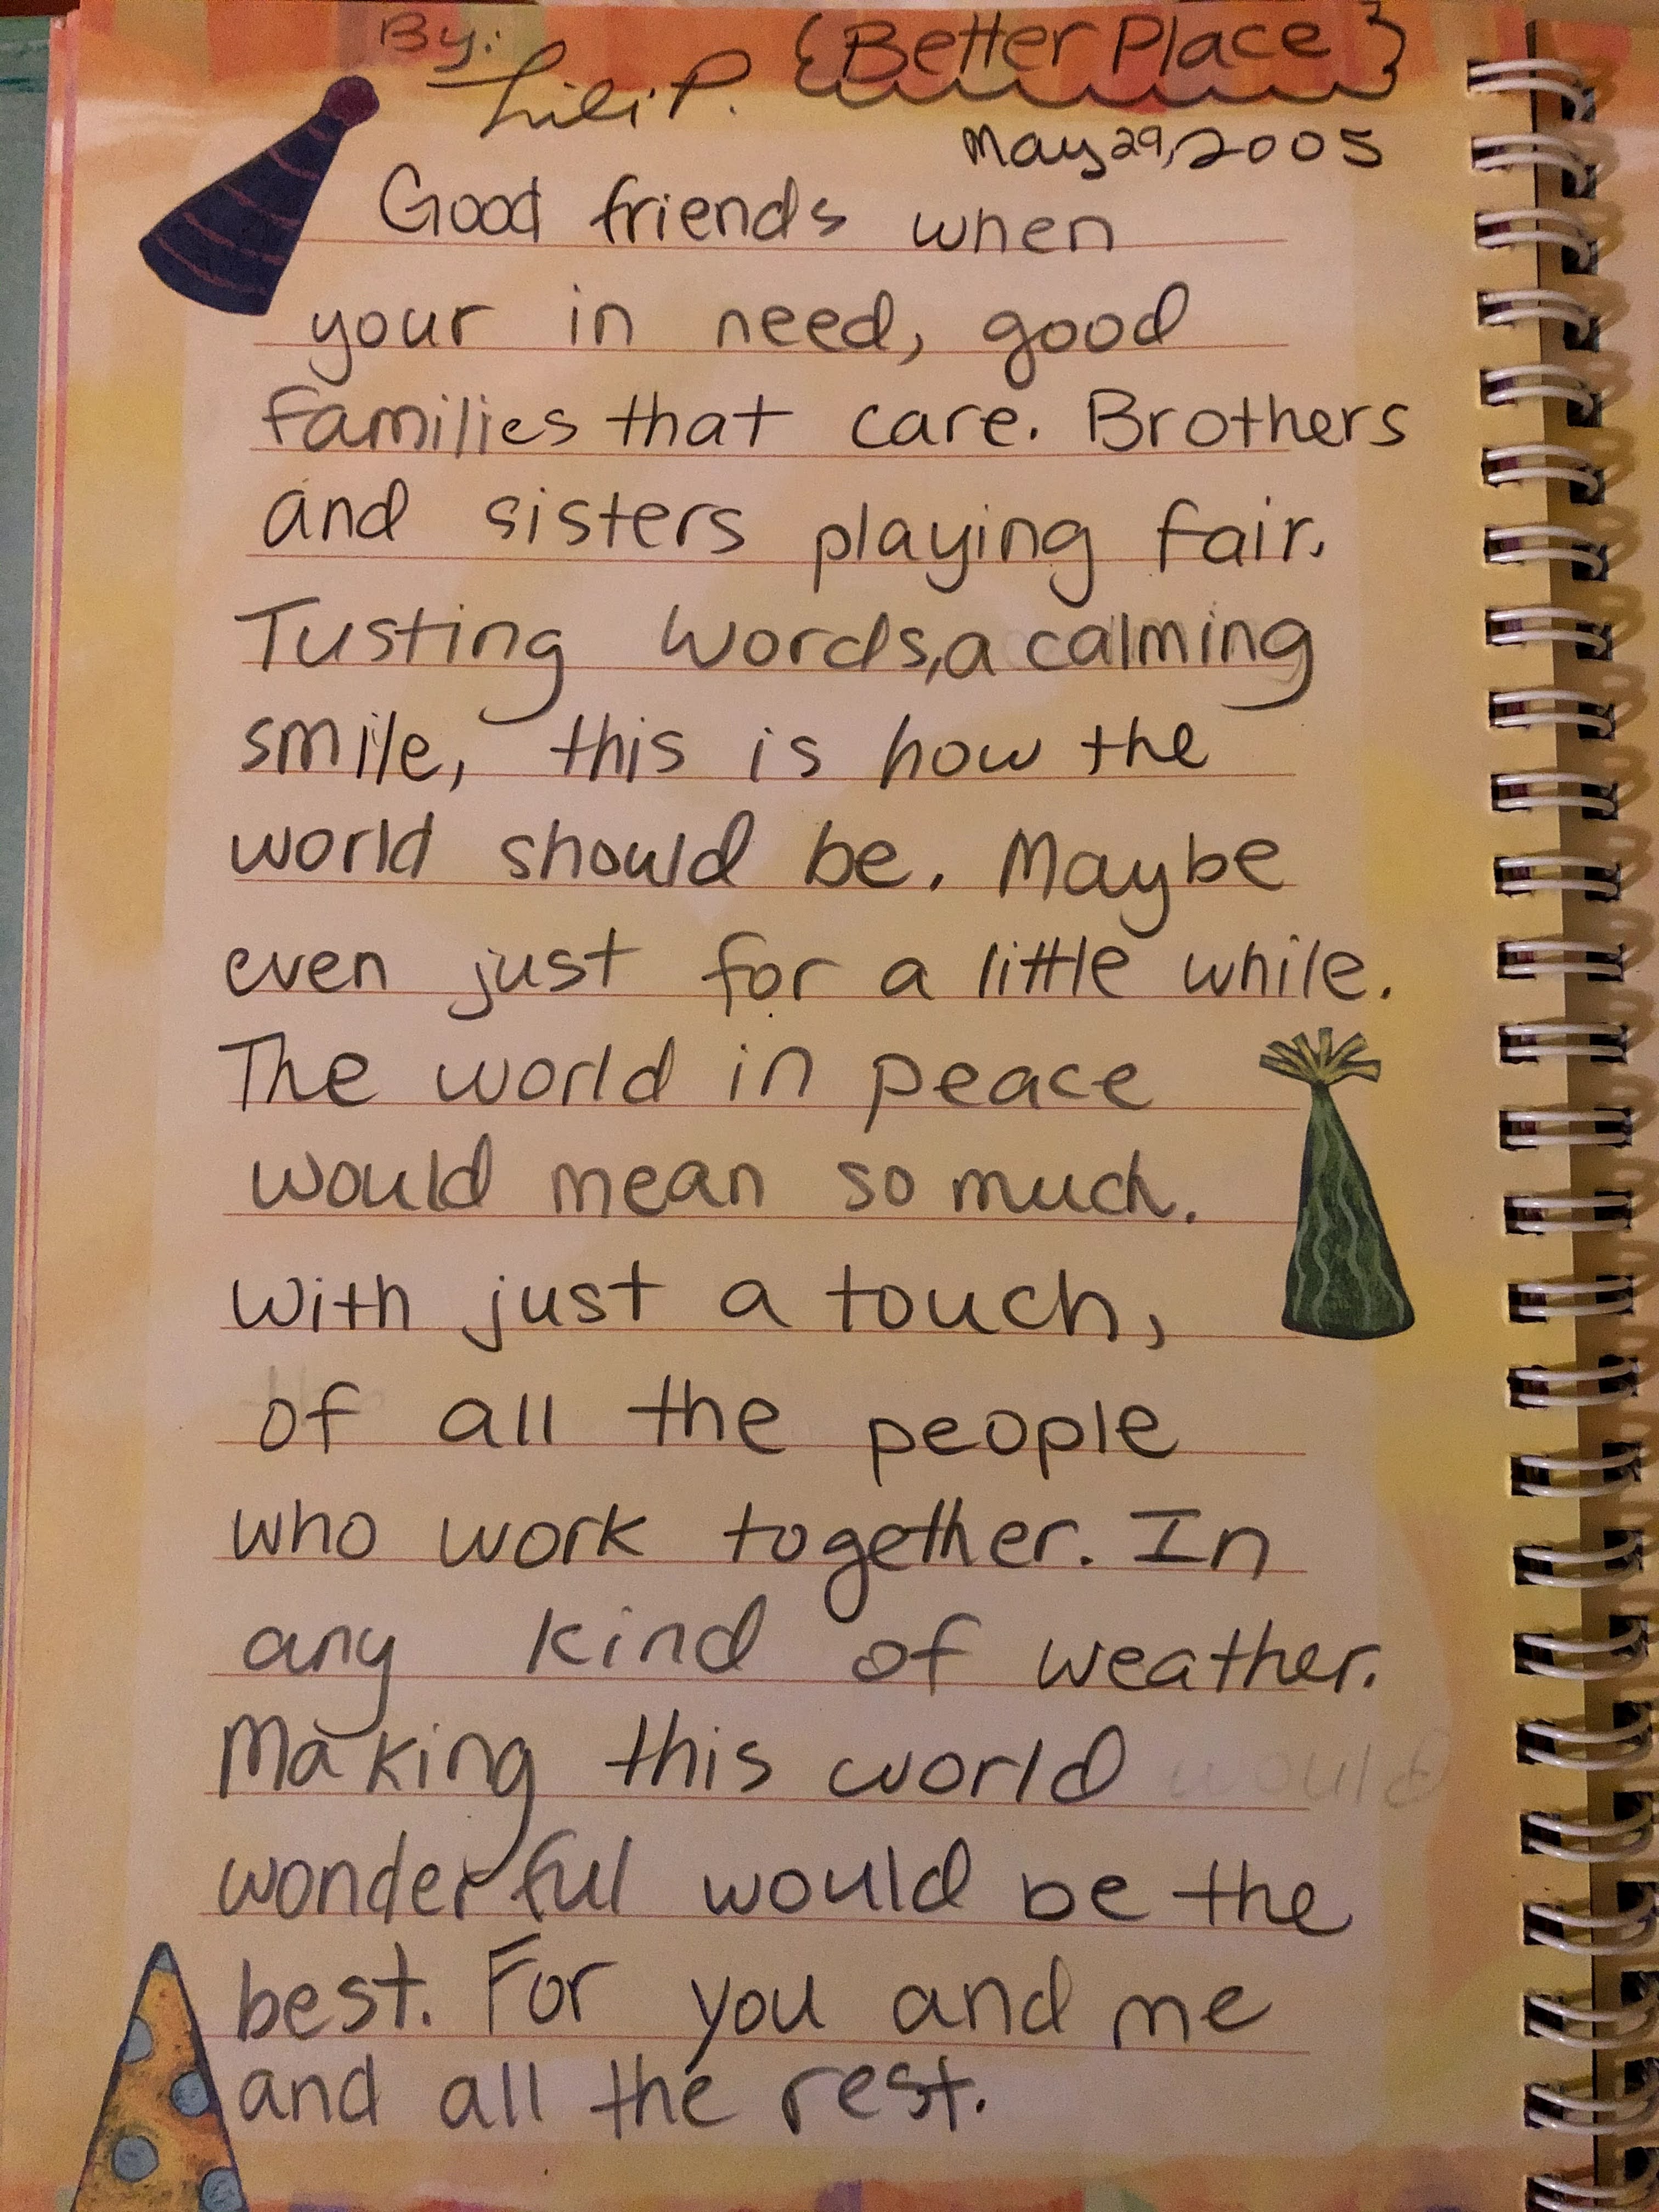 By: Lili P. {Better Place}
May 29, 2005
Good friends when
your in need, good
families that care. Brothers
and sisters playing fair.
Tusting words, a calming
smile, this is how the
world should be. Maybe
even just for a little while.
The world in peace
would mean so much.
With just a touch,
of all the people
who work together. In
any kind of weather.
Making this world would
wonderful would be the
best. For you and me
and all the rest.